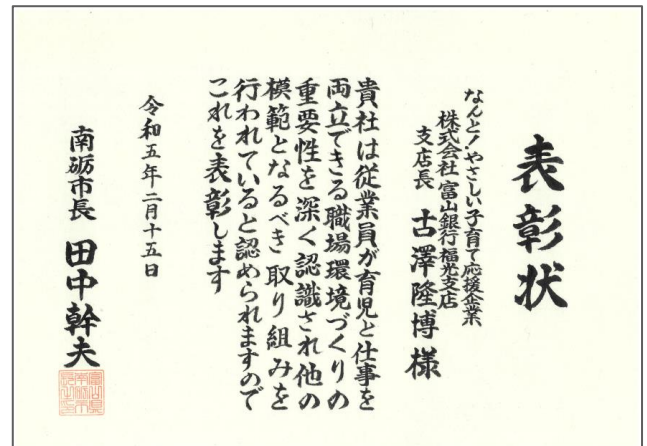 表彰状
なんと！やさしい子育て応援企業
株式会社 富山銀行福光支店
支店長 古澤隆博様
貴社は従業員が育児と仕事を
両立できる職場環境づくりの
重要性を深く認識され他の
模範となるべき取り組みを
行われていると認められますので
これを表彰します
令和五年二月十五日
南砺市長 田中幹夫